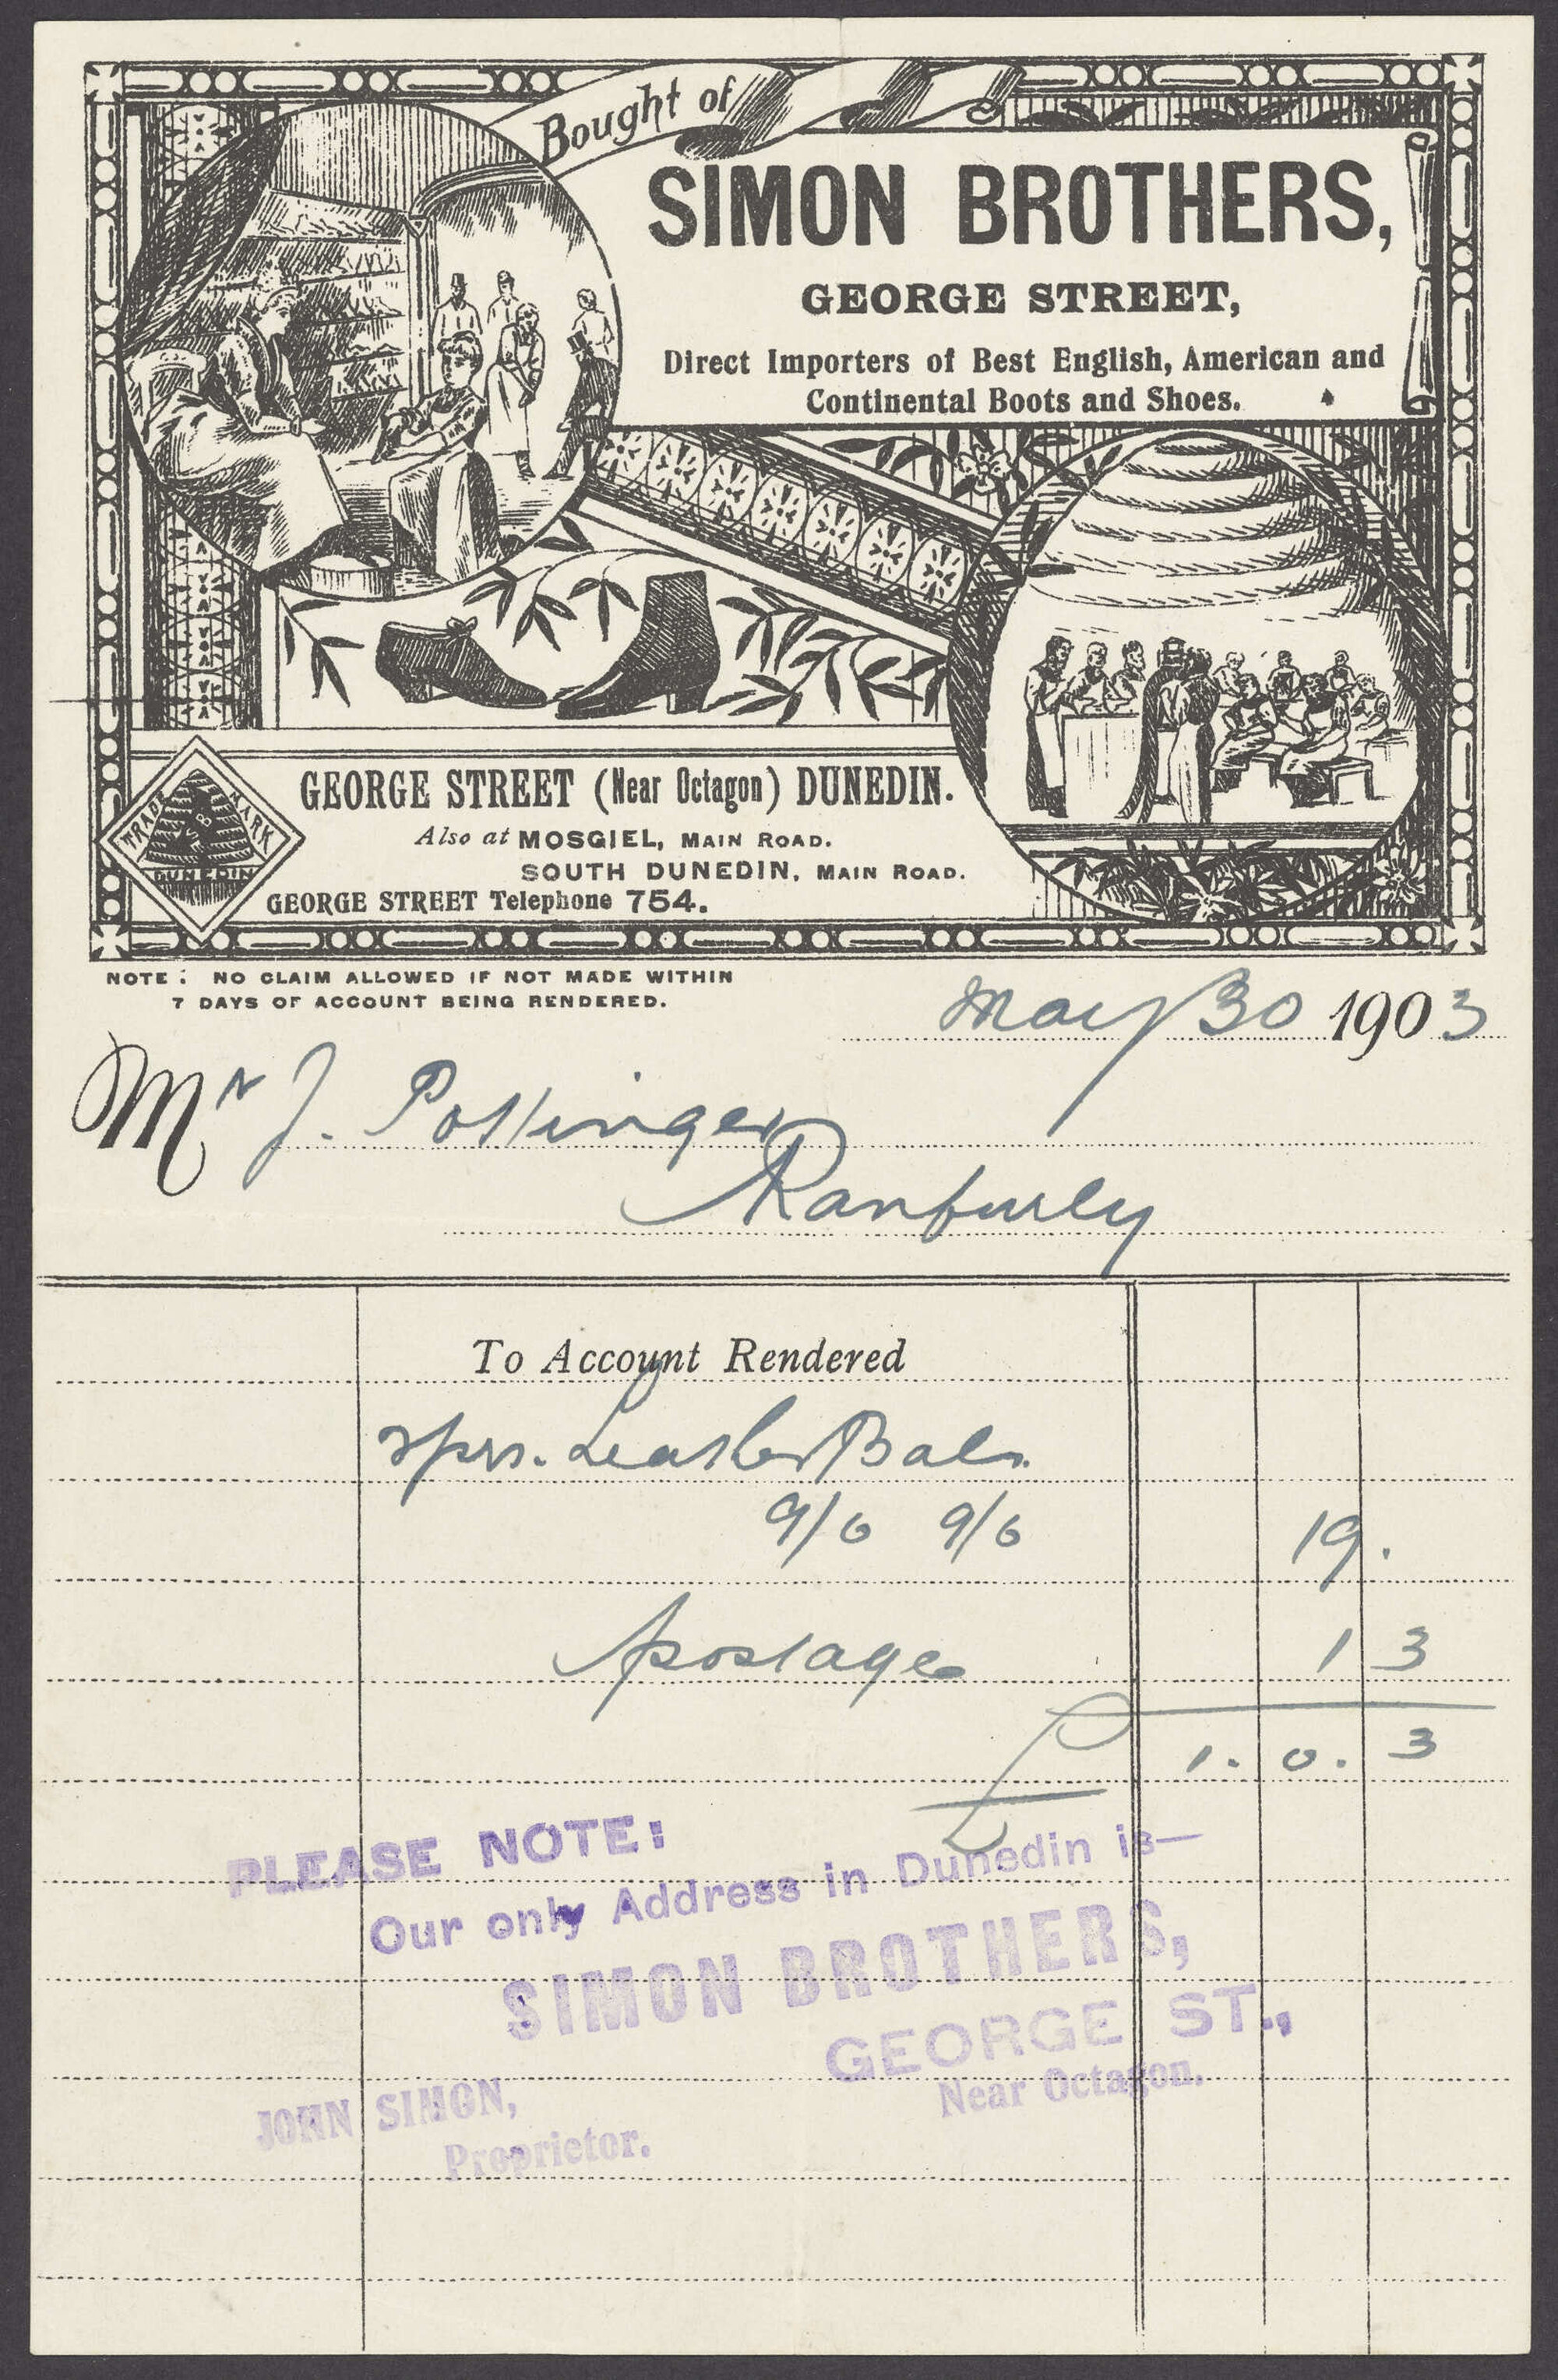 Bought of
SIMON BROTHERS,
GEORGE STREET,
Direct Importers of Best English, American and
Continental Boots and Shoes.
TRADE MARK
DUNEDIN
GEORGE STREET (Near Octagon) DUNEDIN.
Also at MOSGIEL, MAIN ROAD.
SOUTH DUNEDIN, MAIN ROAD.
GEORGE STREET Telephone 754.
NOTE: NO CLAIM ALLOWED IF NOT MADE WITHIN
7 DAYS OF ACCOUNT BEING RENDERED.
May 30 1903
Mr J.
Ranfurly
To Account Rendered
2 prs. Leather Bals.
9/6 9/6 19.
postage 1 3
£ 1. 0. 3
PLEASE NOTE:
Our only Address in Dunedin is—
SIMON BROTHERS,
GEORGE ST.,
Near Octagon.
JOHN SIMON,
Proprietor.